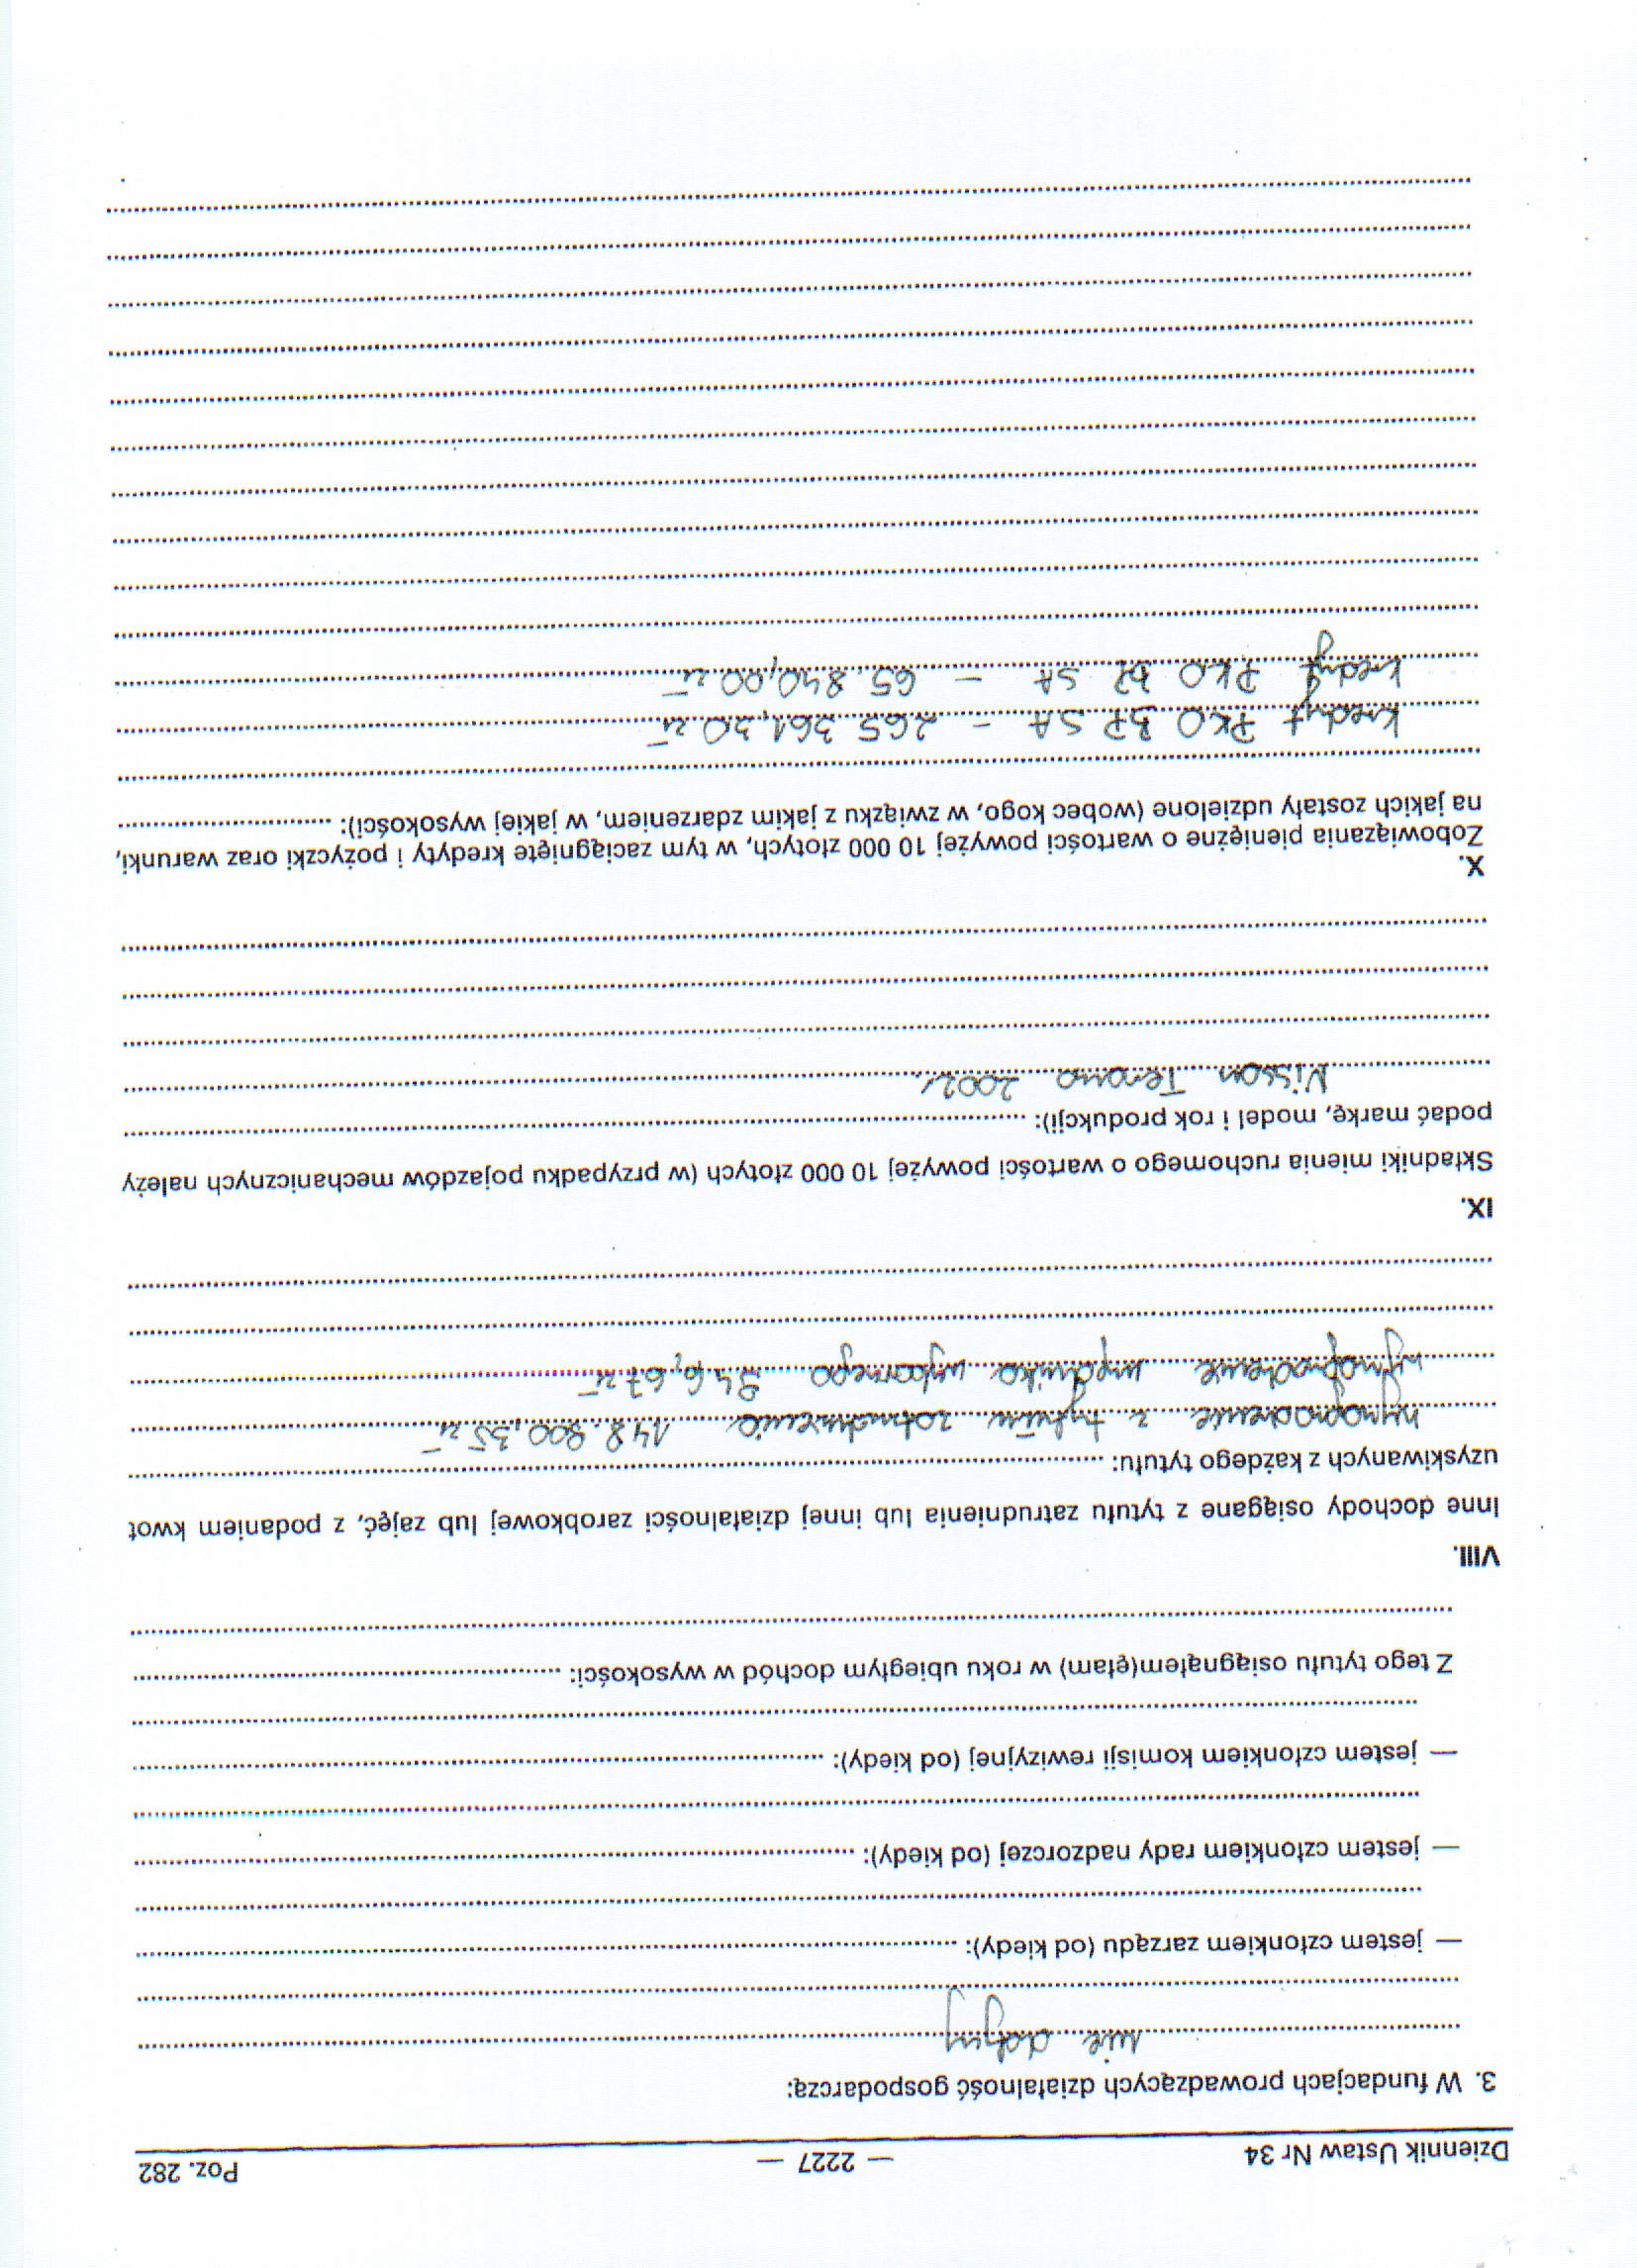 Dziennik Ustaw Nr 34 — 2227 — Poz. 282
3. W fundacjach prowadzących działalność gospodarczą:
nie dotyczy
— jestem członkiem zarządu (od kiedy):
— jestem członkiem rady nadzorczej (od kiedy):
— jestem członkiem komisji rewizyjnej (od kiedy):
Z tego tytułu osiągnąłem(ęłam) w roku ubiegłym dochód w wysokości:
VIII.
Inne dochody osiągane z tytułu zatrudnienia lub innej działalności zarobkowej lub zajęć, z podaniem kwot
uzyskiwanych z każdego tytułu:
wynagrodzenie z tytułu zatrudnienia 148.900,35 zł
wynagrodzenie urzędnika wyborczego 946,67 zł
IX.
Składniki mienia ruchomego o wartości powyżej 10 000 złotych (w przypadku pojazdów mechanicznych należy
podać markę, model i rok produkcji):
Nissan Terano 2002r.
X.
Zobowiązania pieniężne o wartości powyżej 10 000 złotych, w tym zaciągnięte kredyty i pożyczki oraz warunki,
na jakich zostały udzielone (wobec kogo, w związku z jakim zdarzeniem, w jakiej wysokości):
kredyt PKO BP SA – 265 361,30 zł
kredyt PKO BP SA – 65.840,00 zł